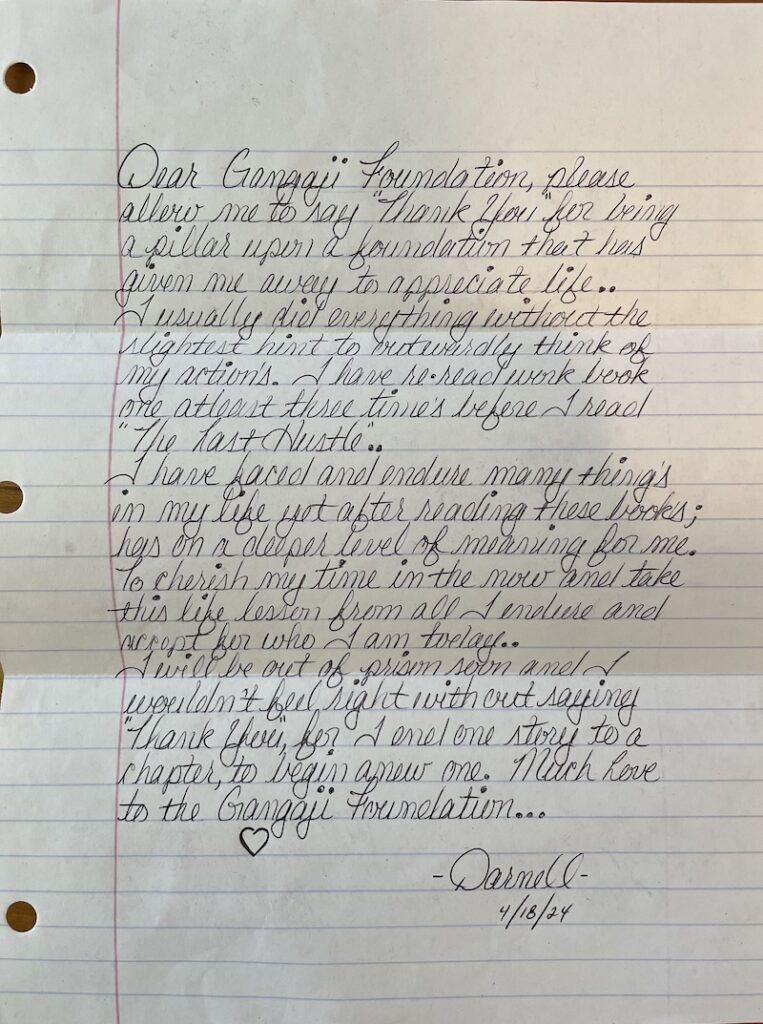 Dear Gangaji Foundation, please
allow me to say "Thank You" for being
a pillar upon a foundation that has
given me away to appreciate life..
I usually did everything without the
slightest hint to outwardly think of
my action's. I have re-read work book
one atleast three time's before I read
"The Last Hustle"..
I have faced and endure many thing's
in my life yet after reading these book's;
has on a deeper level of meaning for me.
To cherish my time in the now and take
this life lesson from all I endure and
accept for who I am today..
I will be out of prison soon and I
wouldn't feel right without saying
"Thank You", for I end one story to a
chapter, to begin anew one. Much Love
to the Gangaji Foundation...
♡
-Darnell-
4/18/24